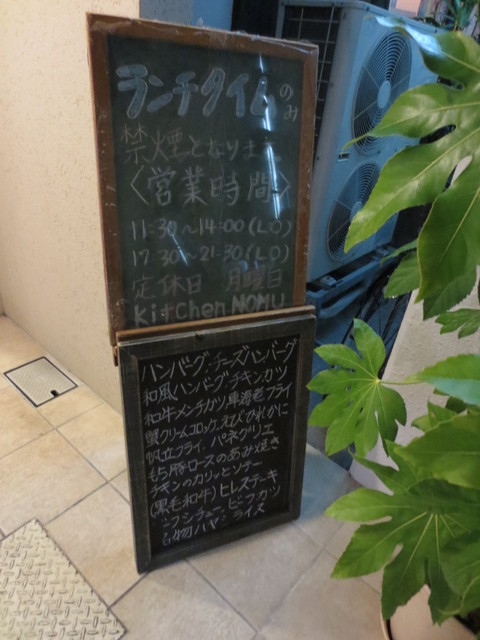 ランチタイムのみ
禁煙となります
〈営業時間〉
11:30〜14:00(LO)
17:30〜21:30(LO)
定休日 月曜日
Kitchen NOMU
ハンバーグ.チーズハンバーグ
和風ハンバーグ.チキンカツ
和牛メンチカツ.車海老フライ
蟹クリームコロッケ.えびひれかに
帆立フライ.パネグリエ
もち豚ロースのあみ焼き
チキンのカリッとソテー
(黒毛和牛)ヒレステーキ
シチュー.ビーフカツ
ハヤシライス